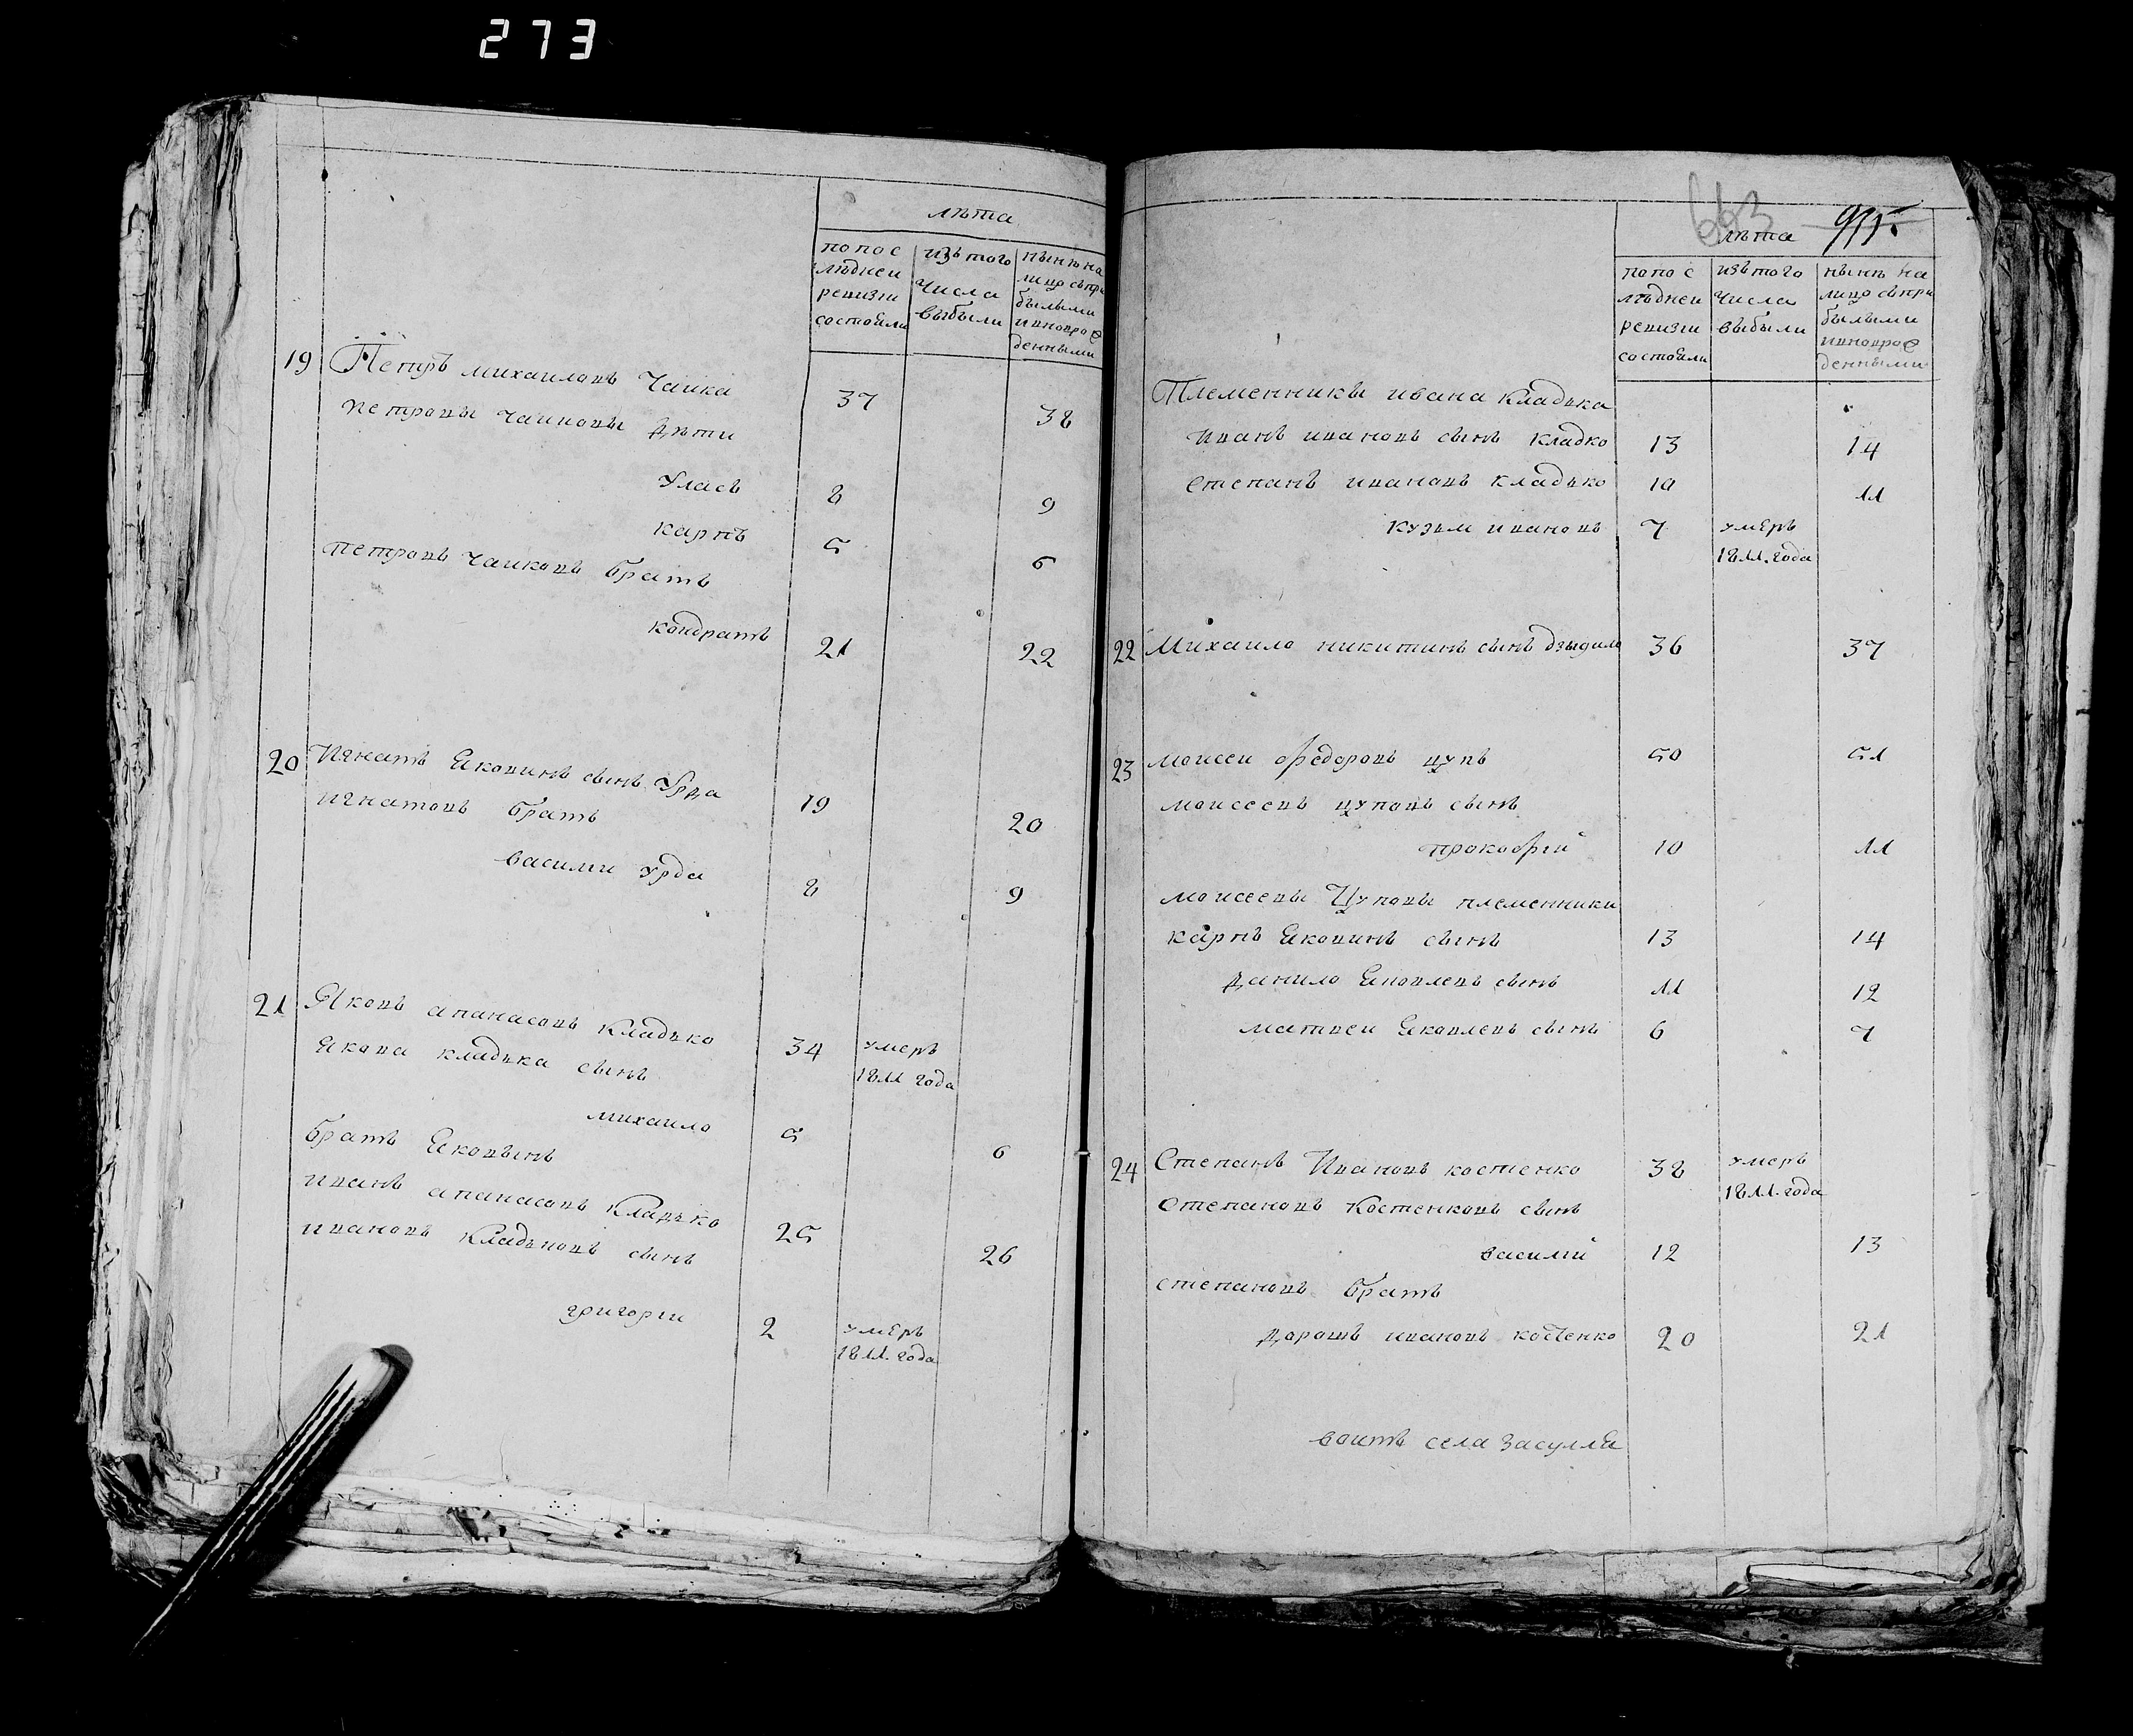 273
лѣта
по пос изъ того нынѣ на
лѣднеи числа лицо съ при
ревизіи выбыли былыми
состояли и новорож
денными
19 Петръ михаиловъ Чаика 37 38
петровы чаиковы дѣти
Уласъ 8 9
карпъ 5 6
петровъ чаиковъ братъ
кондратъ 21 22
20 Игнатъ Яковинъ сынъ Урда 19 20
игнатовъ братъ
василии урда 8 9
21 Яковъ апанасовъ Кладько 34 умеръ
1811 года
Якова кладька сынъ
михаило 5 6
братъ Яковынъ
иванъ апанасовъ Кладько 25 26
ивановъ Кладьковъ сынъ
григории 2 умеръ
1811. года
663 995.
лѣта
по пос изъ того нынѣ на
лѣднеи числа лицо съ при
ревизіи выбыли былыми
состояли и новорож
денными
Племенникы ивана Кладька
иванъ ивановъ сынъ кладко 13 14
степанъ ивановъ кладько 10 11
кузьм ивановъ 7 умеръ
1811. года
22 Михаило никитинъ сынъ дзыдило 36 37
23 моисеи федоровъ цупъ 50 51
моисеевъ цуповъ сынъ
прокофій 10 11
моисеевы Цуповы племенники
карпъ Яковинъ сынъ 13 14
данило Яковлевъ сынъ 11 12
матвеи Яковлевъ сынъ 6 7
24 Степанъ Ивановъ костенко 38 умеръ
1811. года
степановъ Костенковъ сынъ
василій 12 13
степановъ братъ
дорошъ ивановъ костенко 20 21
воитъ села засулля